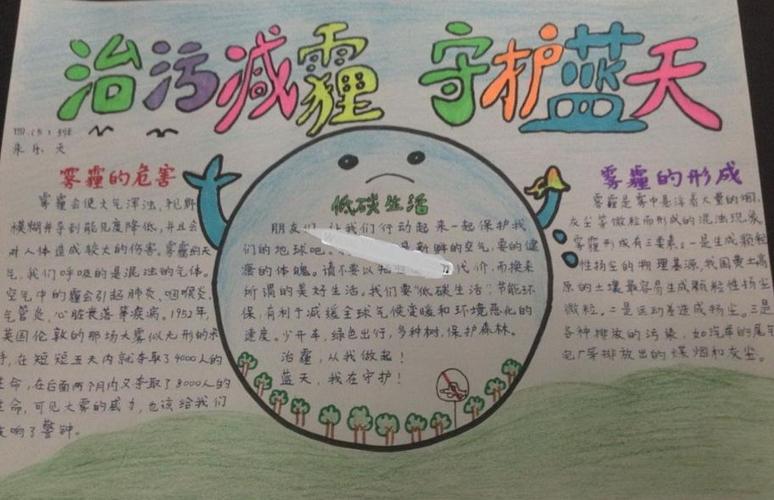 治污减霾 守护蓝天
朱乐天
雾霾的危害
雾霾会使大气浑浊,视野
模糊并导致能见度降低,并且会
对人体造成较大的伤害。雾霾的天
气,我们呼吸的是混浊的气体。
空气中的霾会引起肺炎、咽喉炎、
气管炎、心脏衰落等疾病。1952年,
英国伦敦的那场大雾似无形的杀
手,在短短五天内就杀取了4000人的
生命,在后面两个月内又杀取了8000人的
生命,可见大雾的威力,也该给我们
敲响了警钟。
低碳生活
朋友们,让我们行动起来一起保护我
们的地球吧。是新鲜的空气,要的健
康的体魄。请不要以代价,而换来
所谓的美好生活。我们要"低碳生活",节能环
保,有利于减缓全球气候变暖和环境恶化的
速度。少开车,绿色出行,多种树,保护森林。
治霾,从我做起!
蓝天,我在守护!
雾霾的形成
雾霾是雾中悬浮着大量的烟、
灰尘等微粒而形成的混浊现象。
雾霾形成有三要素:一是生成颗粒
性扬尘的物理基源,我国黄土高
原的土壤最容易生成颗粒性扬尘
微粒。二是运动差造成扬尘。三是
各种排放的污染,如汽车的尾气、
电厂等排放出的煤烟和灰尘。